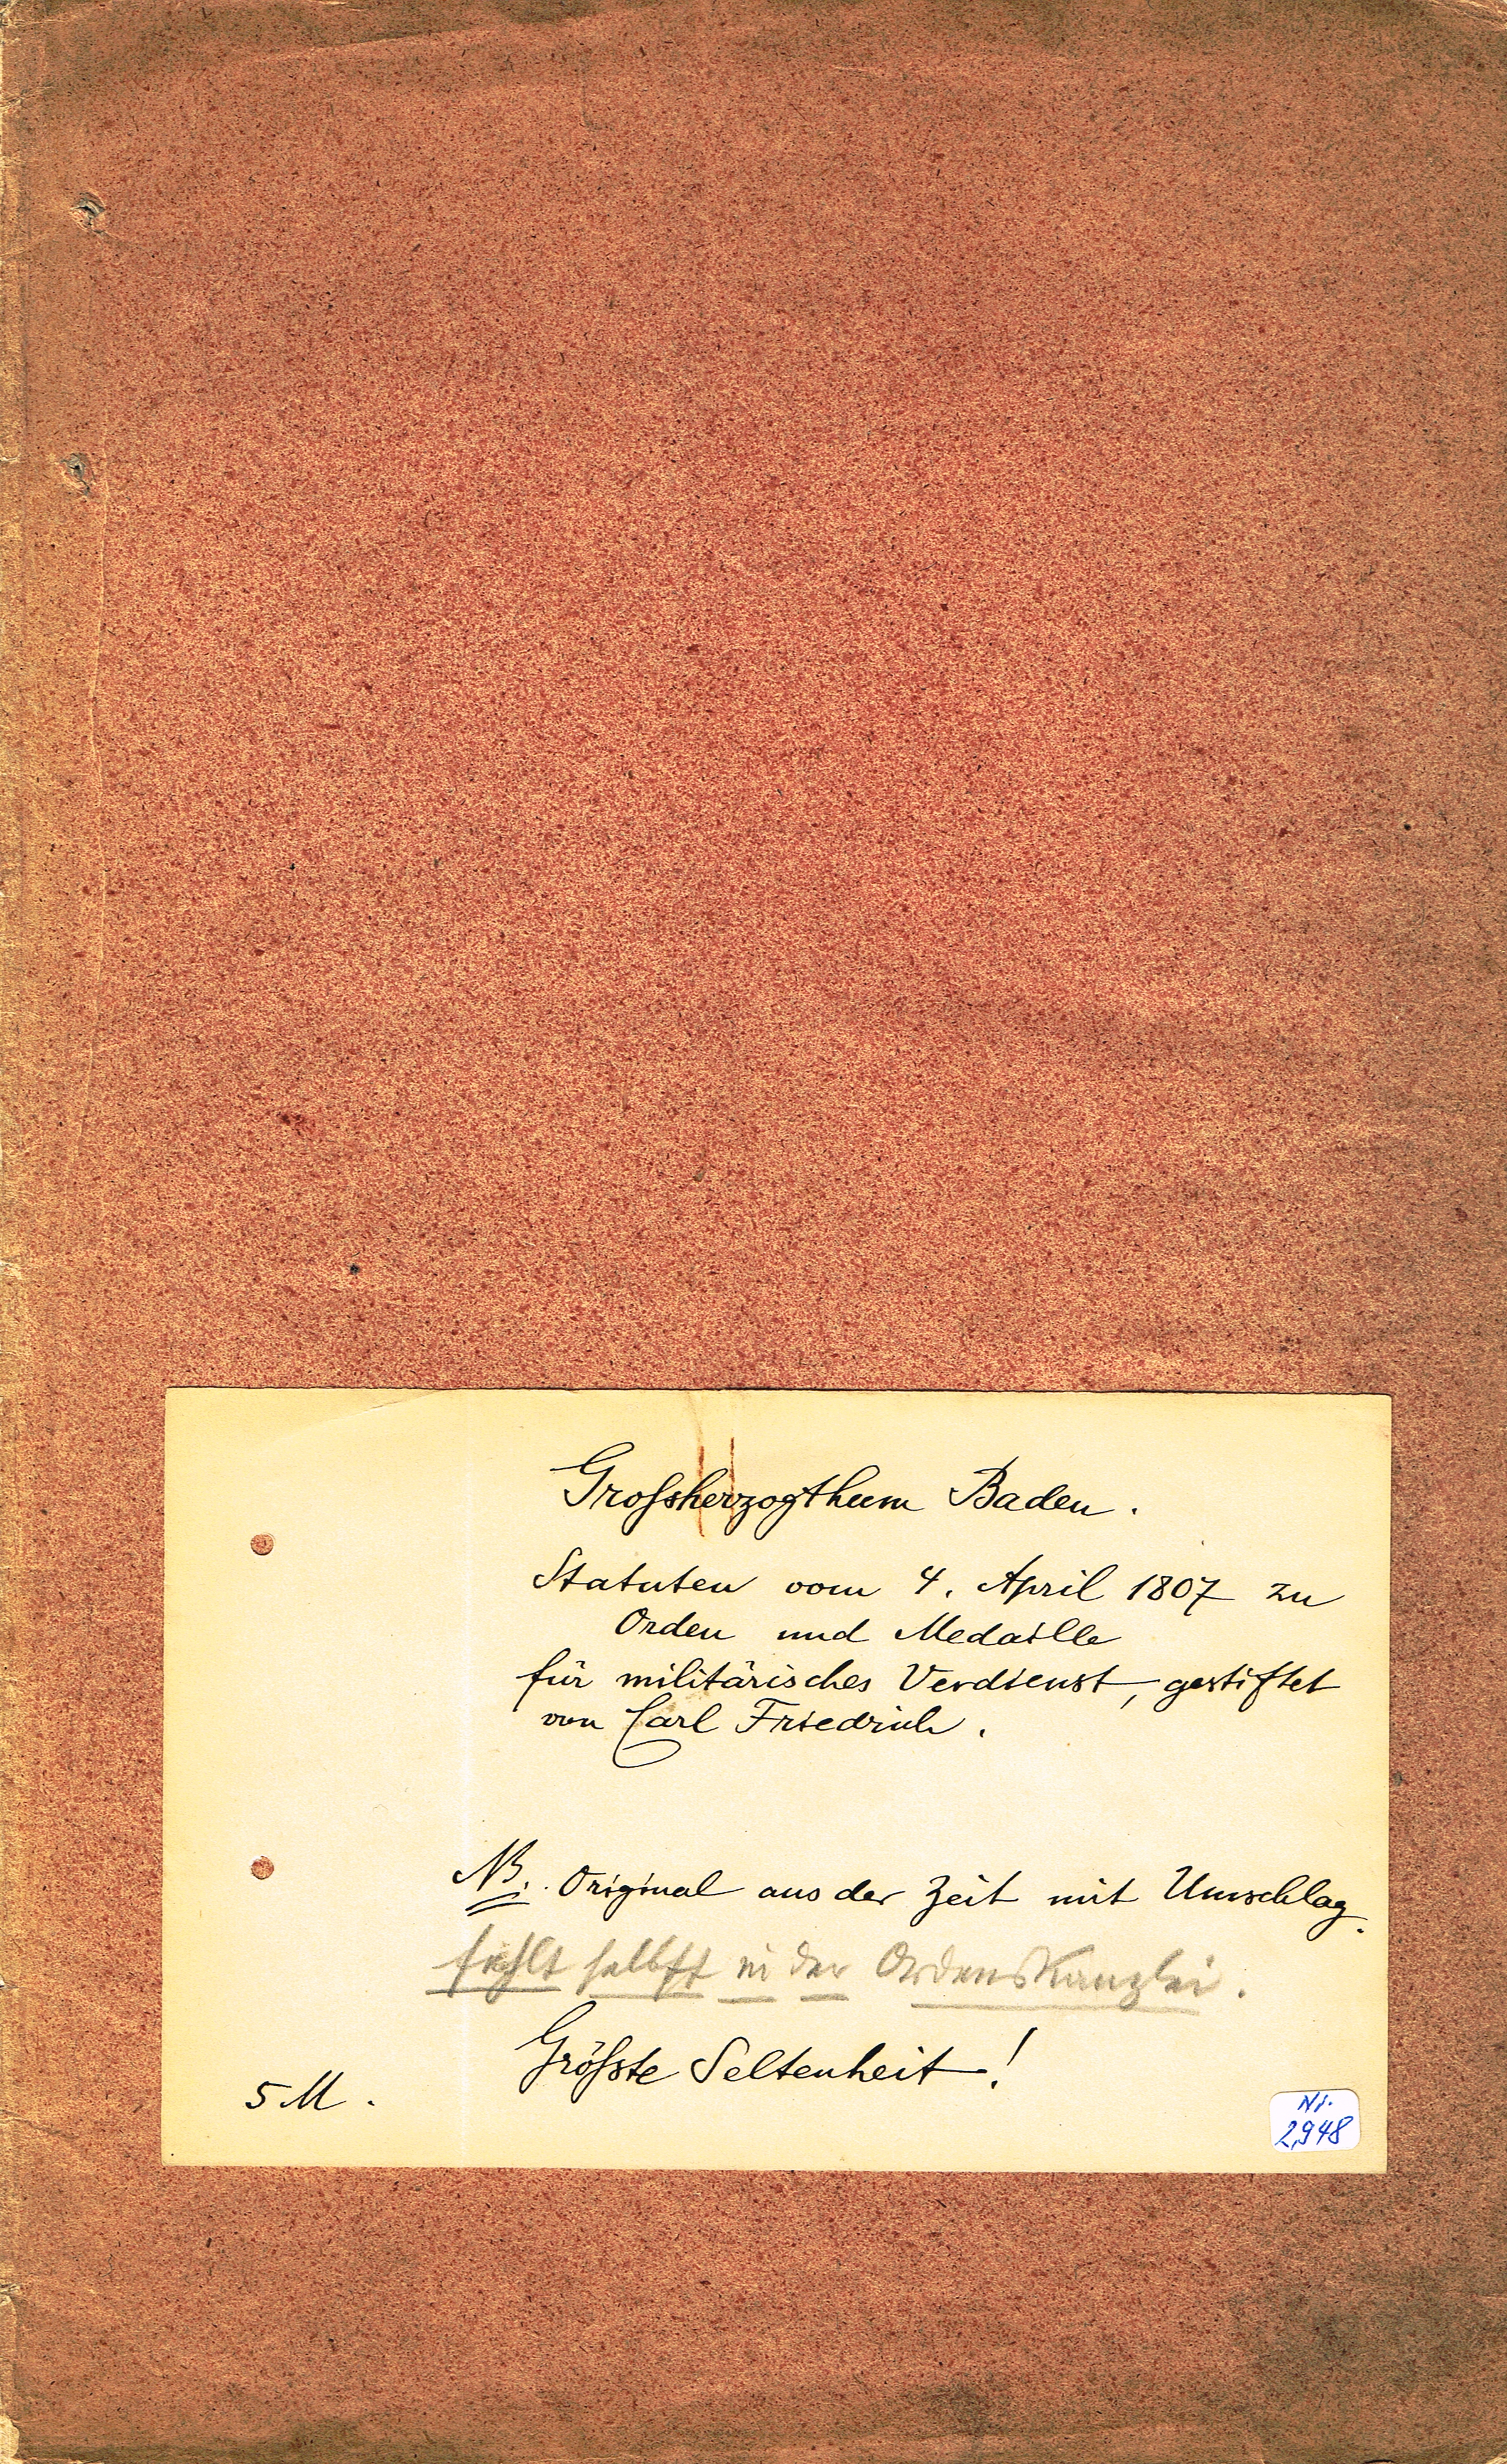 Großherzogthum Baden.
Statuten vom 4. April 1807 zu
Orden und Medaille
für militärisches Verdienst, gestiftet
von Carl Friedrich.
NB. Original aus der Zeit mit Umschlag.
fehlt selbst in der Ordenskanzlei.
Größte Seltenheit!
5 M.
Nr.
2,948